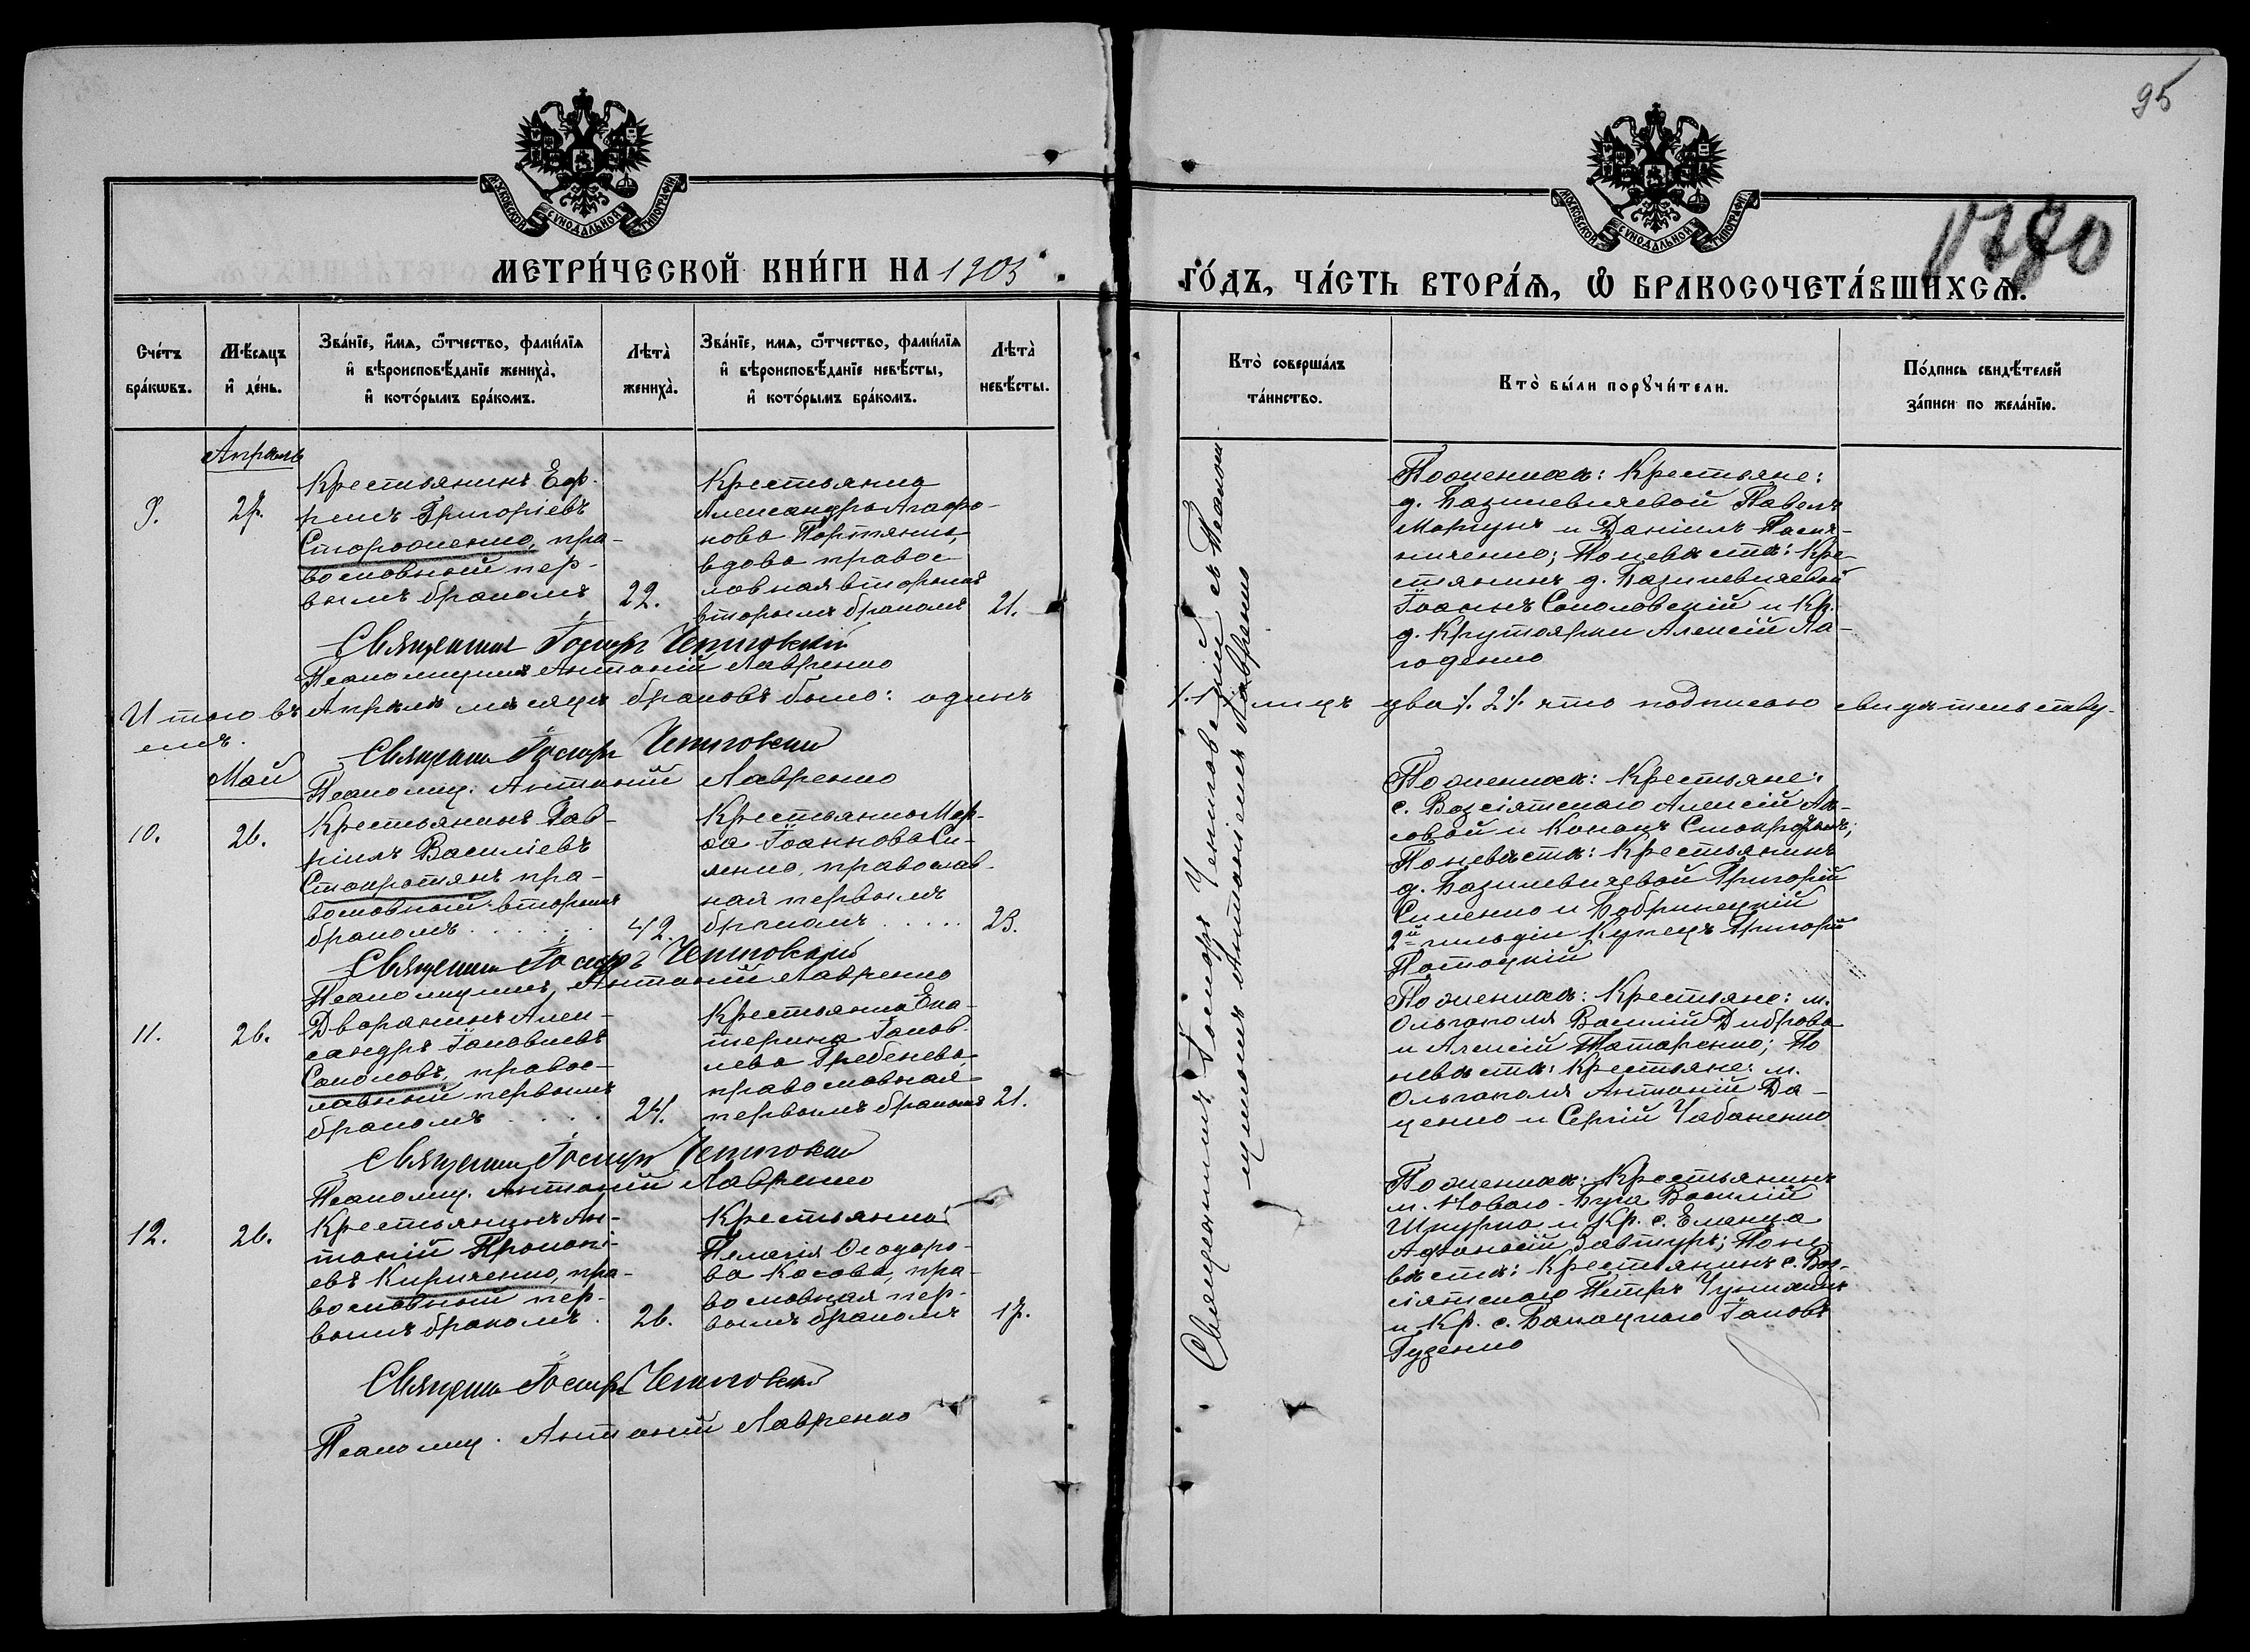 95
1780
МОСКОВСКОЙ СѴНОДАЛЬНОЙ ТИПОГРАФІИ
МОСКОВСКОЙ СѴНОДАЛЬНОЙ ТИПОГРАФІИ
МЕТРИ́ЧЕСКОЙ КНИ́ГИ НА 1903
ГО́ДЪ, ЧА́СТЬ ВТОРА́Ѧ, Ѿ БРАКОСОЧЕТА́ВШИХСѦ.
Сче́тъ
бра́кѡвъ.
Мѣ́сяцъ
и̂ де́нь.
Зва́нїе, и̂́мѧ, ѻ̂́тчество, фами́лїѧ
и̂ вѣроисповѣ́данїе жениха̀,
и̂ кото́рымъ бра́комъ.
Лѣта̀
жениха̀.
Зва́нїе, имѧ, ѻ̂́тчество, фами́лїѧ
и̂ вѣроисповѣ́данїе невѣ́сты,
и̂ кото́рымъ бра́комъ.
Лѣта̀
невѣ́сты.
Кто̀ соверша́лъ
та́инство.
Кто̀ бы́ли порꙋчи́тели.
По́дпись свидѣ́телей
за́писи по жела́нїю.
Апрѣль
9.
27.
Крестьянинъ Еф-
ремъ Григоріевъ
Стороженко, пра-
вославный пер-
вымъ бракомъ
22.
Крестьянка
Александра Агафо-
нова Портянко,
вдова правос
лавная вторымъ
вторымъ бракомъ
21.
По женихѣ: Крестьяне:
д. Базилевичевой Павелъ
Моргунъ и Даніилъ
По невѣстѣ: Кре-
стьянинъ д. Базилевичевой
Іоаннъ Соколовскій и Кр.
д. Крутоярки Алексій Ла-
годенко
Священникъ Іосифъ
Псаломщикъ Антоній Лавренко
Итого въ Апрѣлѣ мѣсяцѣ браковъ было: одинъ
./.1./. лицъ два ./.2./. что подписью свидѣтельству-
емъ.
Священ. Іосифъ
Псаломщ. Антоній Лавренко
Май
10.
26.
Крестьянинъ Гав-
ріилъ Василіевъ
Стокротянъ пра-
вославный вторымъ
бракомъ
42.
Крестьянка Мар-
ѳа Іоаннова Си-
ленко, православ-
ная первымъ
бракомъ
23.
По женихѣ: Крестьяне:
с. Возсіятскаго Алексій
и Кононъ
По невѣстѣ: Крестьянинъ
д. Базилевичевой Григорій
Силенко и Бобринецкій
2й гильдіи Купецъ Григорій
Потоцкій
Священ. Іосифъ
Псаломщикъ Антоній Лавренко
11.
26.
Дворянинъ Алек-
сандръ Іаковлевъ
Соколовъ, правос-
лавный первымъ
бракомъ
24.
Крестьянка Ека-
терина Іаков-
лева Гребенева
православная
первымъ бракомъ
21.
По женихѣ: Крестьяне: м.
Ольгополя Василій Диброва
и Алексій Татаренко; По
невѣстѣ: Крестьяне: м.
Ольгополя Антоній Да-
ценко и Сергій Чабаненко
Священ. Іосифъ
Псаломщ. Антоній Лавренко
12.
26.
Крестьянинъ Ан-
тоній Прокопі-
евъ Кириченко, пра-
вославный пер-
вымъ бракомъ
26.
Крестьянка
Пелагія Ѳеодоро-
ва Косова, пра-
вославная пер-
вымъ бракомъ
17.
По женихѣ: Крестьянинъ
м. Новаго-Буга Василій
Шкурко и Кр. с. Еланца
Афанасій Завтуръ; По не-
вѣстѣ: Крестьянинъ с. Воз-
сіятскаго Петръ
и Кр. с. Іаковъ
Гузенко
Священ. Іосифъ
Псаломщ. Антоній Лавренко
Священникъ Іосифъ съ Псалом-
щикомъ Антоніемъ Лавренко